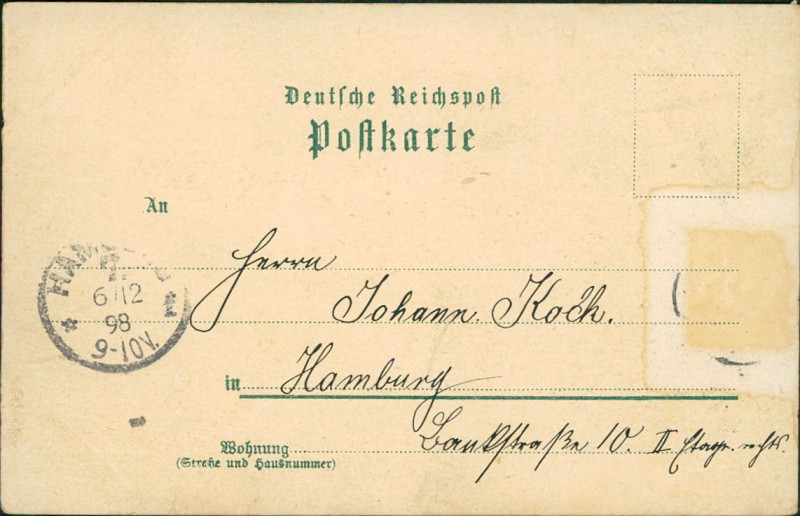 Deutsche Reichspost
Postkarte
An
HAMBURG 1
6/12
98
9-10V.
Herrn
Johann Koch.
in Hamburg
Bankstraße 10. II Etage. rechts.
Wohnung
(Straße und Hausnummer)